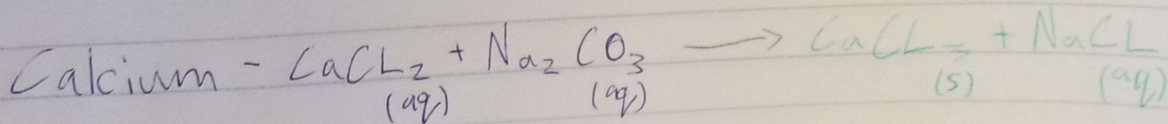 Calcium - CaCL₂ (aq) + Na₂CO₃ (aq) → CaCL₃ (s) + NaCL (aq)